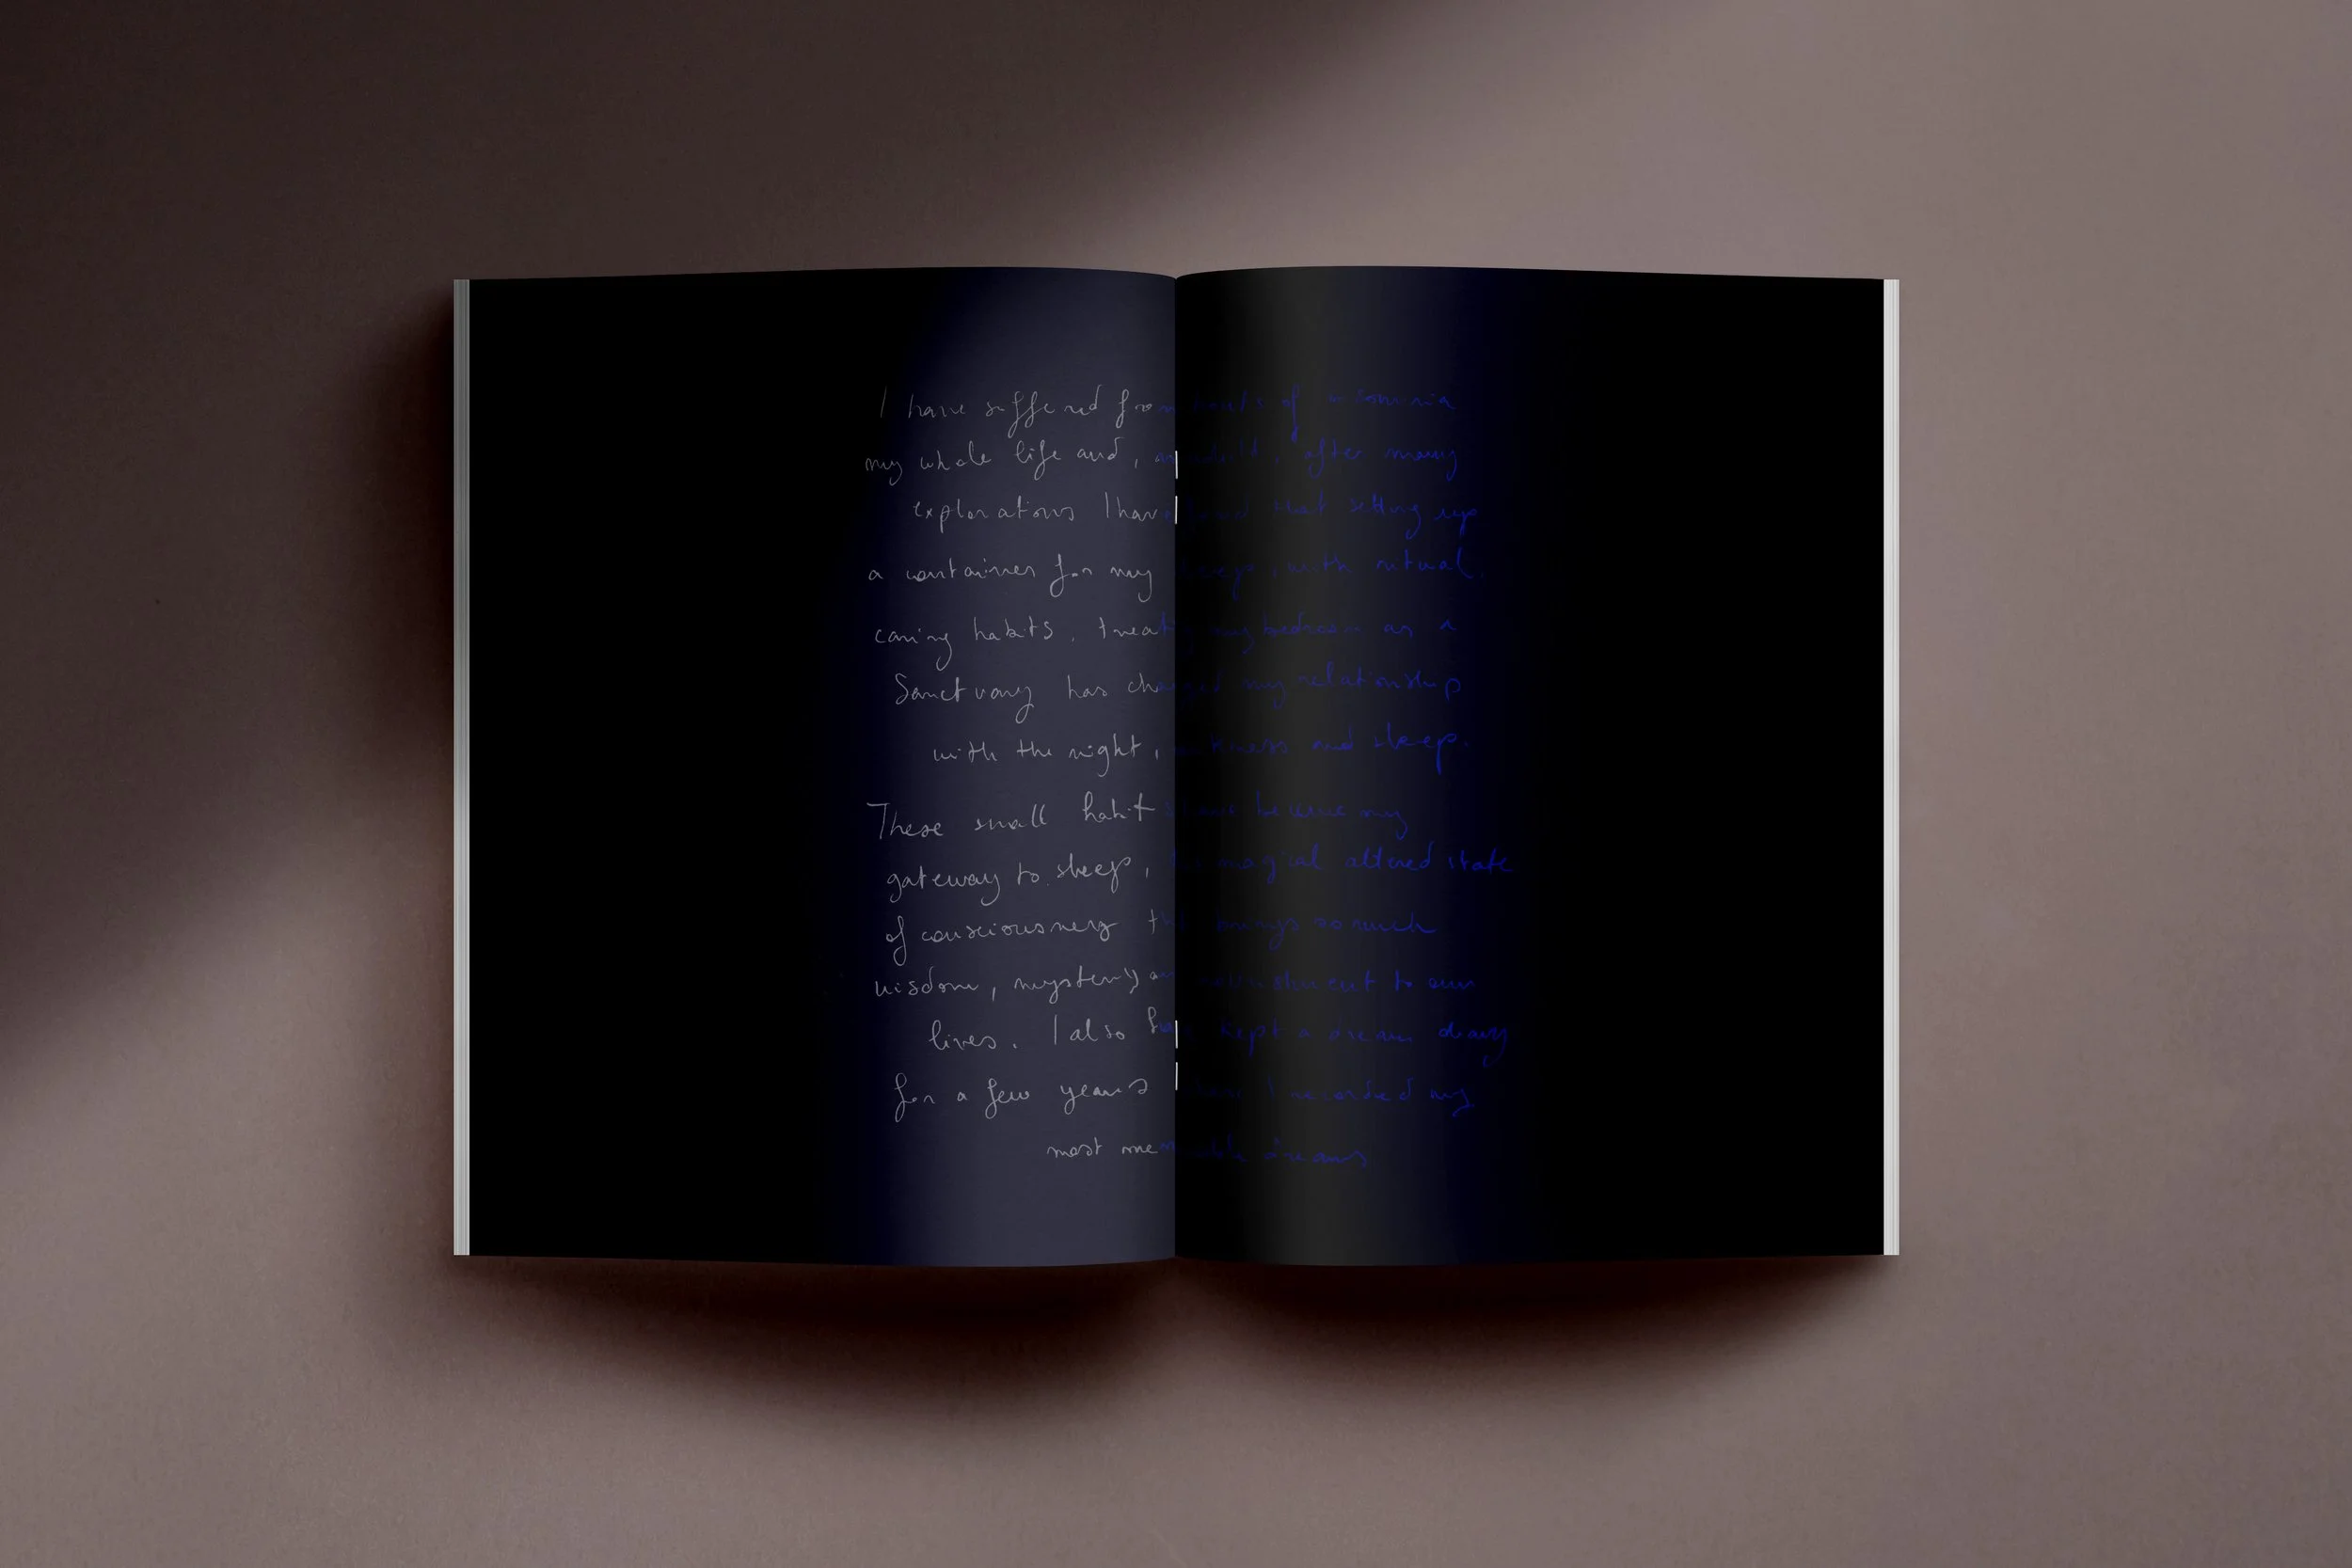 I have suffered from bouts of insomnia
my whole life and, as adult, after many
explorations I have found that setting up
a container for my sleep, with ritual,
caring habits, treating my bedroom as a
Sanctuary has changed my relationship
with the night, darkness and sleep.
These small habits have become my
gateway to sleep, the magical altered state
of consciousness that brings so much
wisdom, mystery and nourishment to our
lives. I also have kept a dream diary
for a few years where I recorded my
most memorable dreams